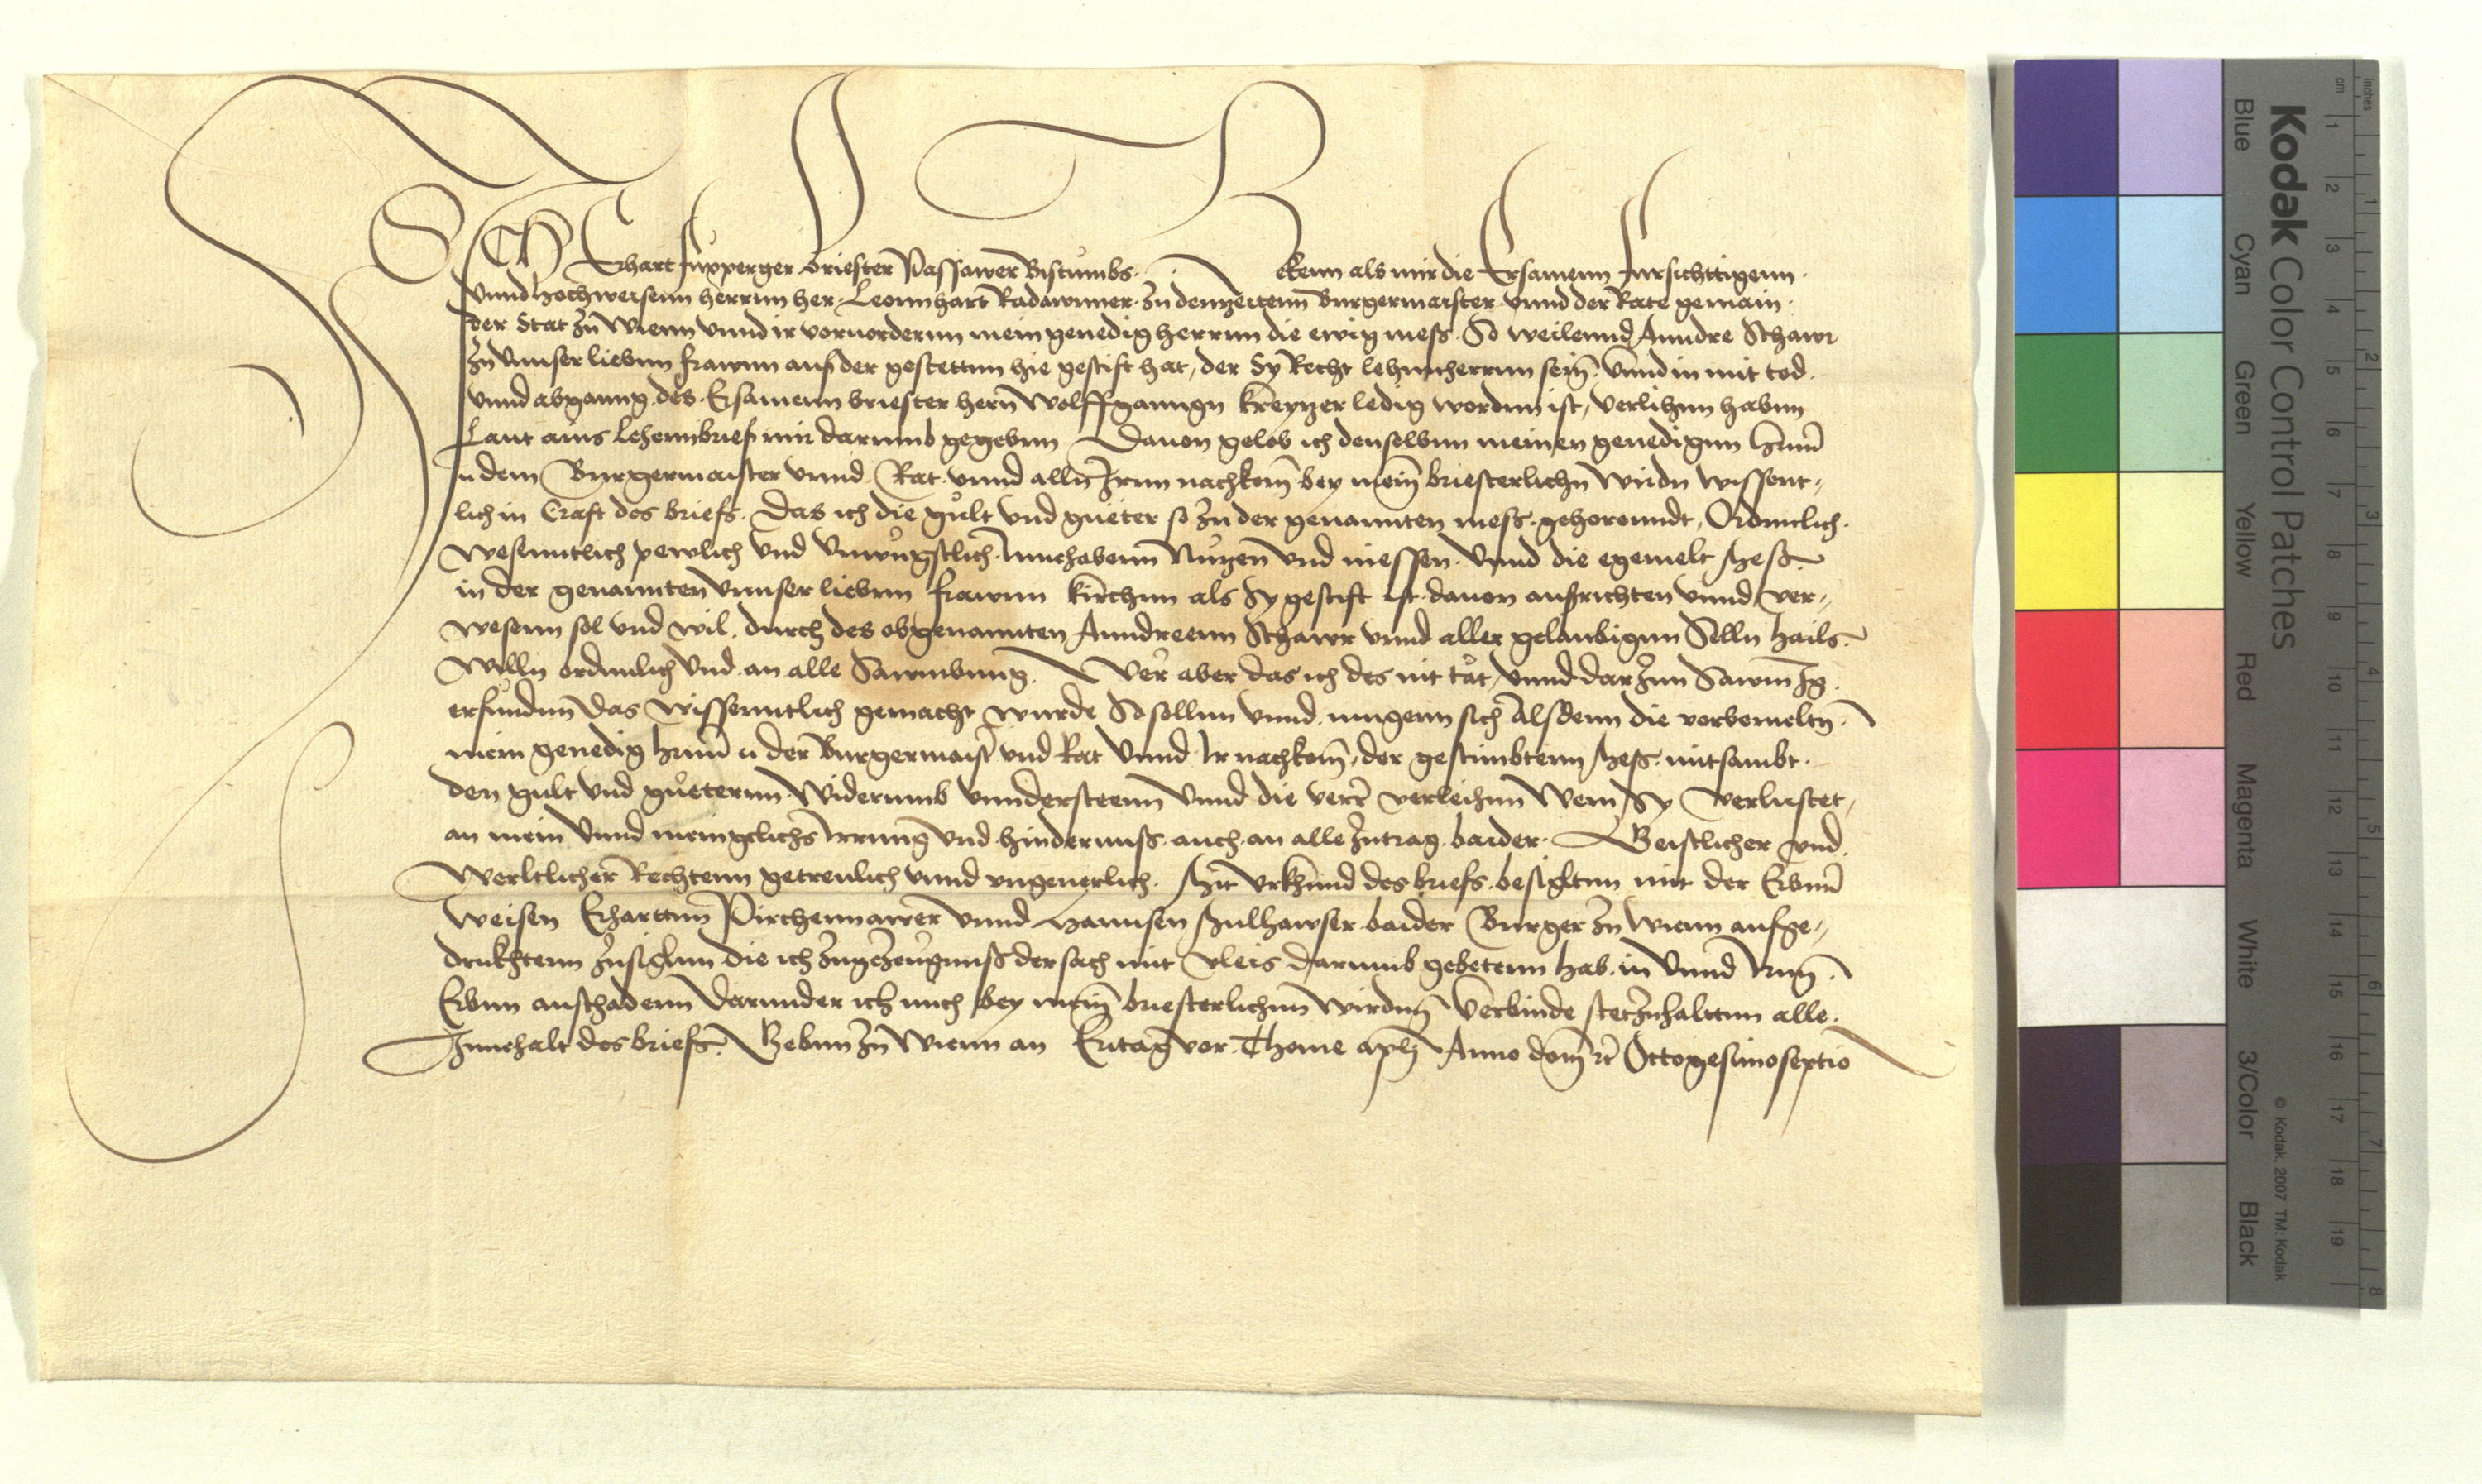 Ich Erhart briester Passawer Bistumbs Bekenn als mir die Ersamenn Fursichttigenn
vnnd hochweisenn herrnn her Leonnhart Radawnner zu dennzeitenn Burgermaister vnnd der Rate gemain
der Stat zu Wienn vnnd ir vorvordernn mein genedig herrnn die ewig mess So weilennd Anndre Schawr
zu vnnser liebnn frawnn auf der gestettnn hie gestift hat, der Sy Recht lehennherrnn sein vnnd in mit tod
vnnd abganng des Ersamenn briester hern Wolffganngn kreyzer ledig wordnn ist, verlihnn habnn
Laut ains lehennbriefs mir darumb gegebnn Dauon gelob ich denselbnn meinen genedignn hrnn
n dem Burgermaister vnnd Rat vnnd alln Irnn nachkom bey mein briesterlichn wirdn wissent„
lich in Craft des briefs. Das ich die gult vnd gueter so zu der genannten mess gehorenndt, Ordenntlich
wesenntlich pewlich vnd vnwustlich Innhabenn Nuzen vnd niessen. Vnnd die egemelt Mess
in der genannten vnnser liebnn frawnn kirchnn als Sy gestift ist dauon ausrichten vnnd ver„
wesenn sol vnd wil. durch des obgenannten Anndreenn Schawr vnnd aller gelaubignn Selln hails
willn ordenlich vnd an alle Sawmbnng. Wer aber das ich des nit tat, vnnd darzun Sawmig
erfundnn das wissenntlich gemacht wurde So sollnn vnnd mugenn sich Alsdenn die vorbemeltn
mein genedig hrnn n der Burgermaister vnd Rat Vnnd Ir nachkom, der gestimbtenn Mess mitsambt
den gult vnd guternn Widerumb vnndersteenn Vnnd die verr verleihnn Wem Sy verlustet,
an mein Vnnd menigclichs Irrung vnd hindernuss auch an alle Intrag baider Geistlicher vnd
Werltlicher Rechtenn getreulich vnnd vngeuerlich. Mit vrkhund des briefs besigltnn mit der Erbnn
weisen Erharttnn Pirchennawer vnnd Hannsen Mulhawser baider Burger zu Wienn aufge„
drukhtenn Insiglnn die ich zugezeugnuss der sach mit vleis darumb gebetenn hab. in Vnnd Irnn
Erbnn anschadenn Darunder ich mich bey mein briesterlichnn wirdnn Verbinde stetzuhalttnn alle
Innhalt des briefs. Gebnn zu Wienn an Eritag vor Thome apli Anno dom rc Octogesimoseptio
Kodak Color Control Patches
Blue Cyan Green Yellow Red Magenta White 3/Color Black
© Kodak, 2007 TM: Kodak
cm 1 2 3 4 5 6 7 8 9 10 11 12 13 14 15 16 17 18 19
inches 1 2 3 4 5 6 7 8